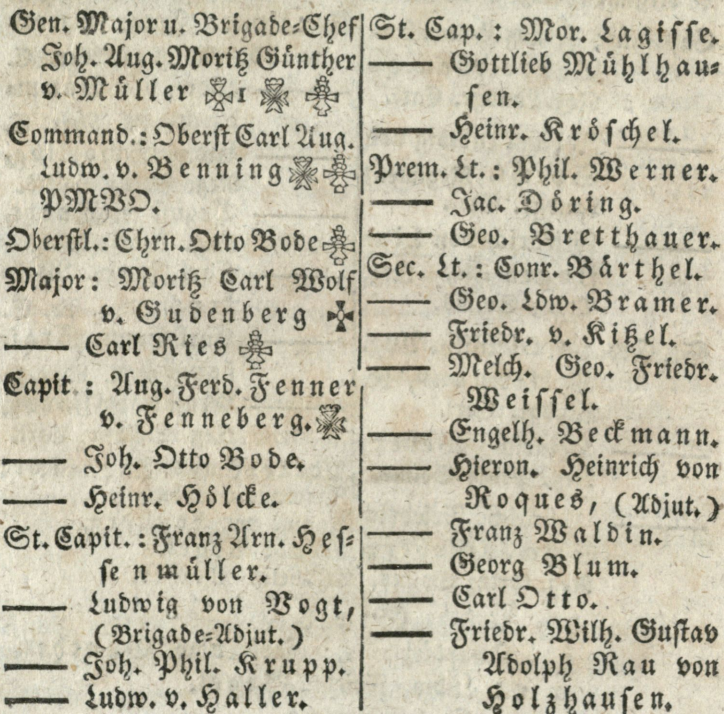 Gen. Major u. Brigade-Chef
Joh. Aug. Moritz Günther
v. Müller 1
Command.: Oberst Carl Aug.
Ludw. v. Benning
PMVO.
Oberstl.: Chrn. Otto Bode
Major: Moritz Carl Wolf
v. Gudenberg
—— Carl Ries
Capit : Aug. Ferd. Fenner
v. Fenneberg.
—— Joh. Otto Bode.
—— Heinr. Hölcke.
St. Capit. : Franz Arn. Hes-
senmüller.
—— Ludwig von Vogt,
(Brigade-Adjut.)
—— Joh. Phil. Krupp.
—— Ludw. v. Haller.
St. Cap. : Mor. Lagisse.
—— Gottlieb Mühlhau-
sen.
—— Heinr. Kröschel.
Prem. Lt. : Phil. Werner.
—— Jac. Döring.
—— Geo. Bretthauer.
Sec. Lt. : Conr. Bärthel.
—— Geo. Ldw. Bramer.
—— Friedr. v. Kitzel.
—— Melch. Geo. Friedr.
Weissel.
—— Engelh. Beckmann.
—— Hieron. Heinrich von
Roques, (Adjut.)
—— Franz Waldin.
—— Georg Blum.
—— Carl Otto.
—— Friedr. Wilh. Gustav
Adolph Rau von
Holzhausen.